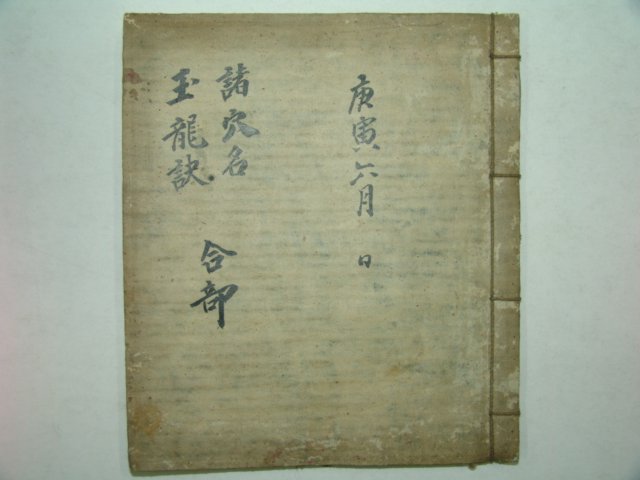 庚寅六月 日
諸穴名
玉龍訣
合部